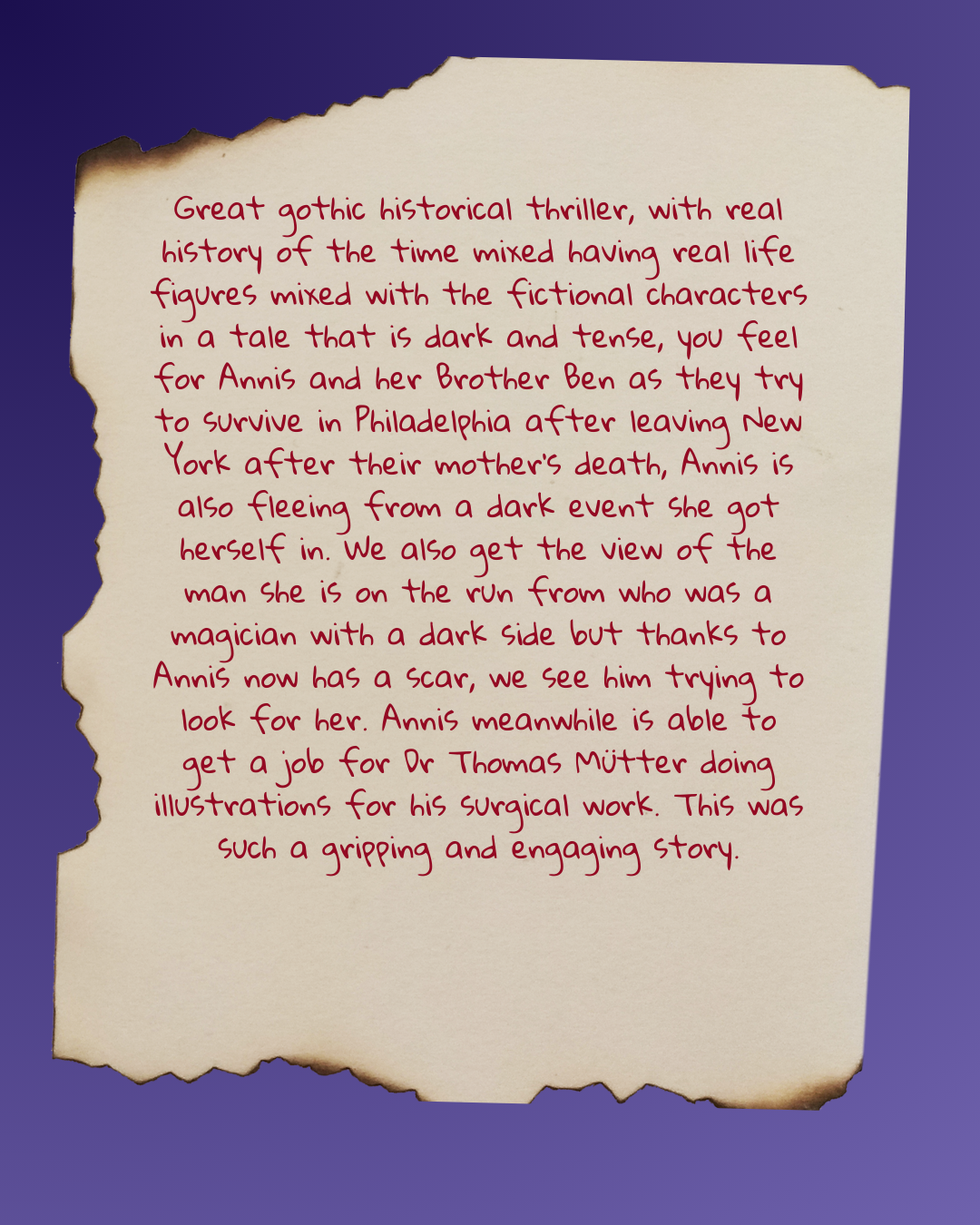 Great gothic historical thriller, with real
history of the time mixed having real life
figures mixed with the fictional characters
in a tale that is dark and tense, you feel
for Annis and her Brother Ben as they try
to survive in Philadelphia after leaving New
York after their mother's death, Annis is
also fleeing from a dark event she got
herself in. We also get the view of the
man she is on the run from who was a
magician with a dark side but thanks to
Annis now has a scar, we see him trying to
look for her. Annis meanwhile is able to
get a job for Dr Thomas Mütter doing
illustrations for his surgical work. This was
such a gripping and engaging story.